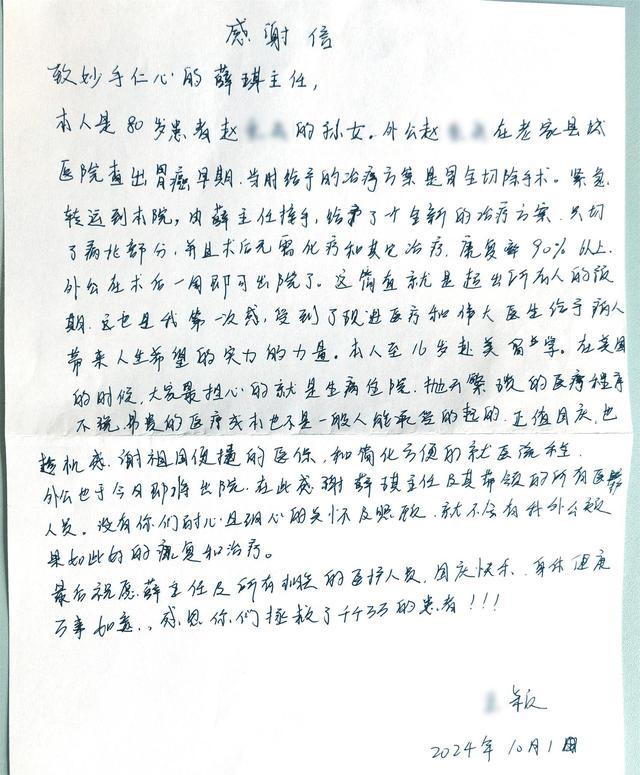 感谢信
致妙手仁心的薛琪主任，
本人是80岁患者赵 的孙女。外公赵 在老家县城
医院查出胃癌早期，当时给予的治疗方案是胃全切除手术。紧急
转运到本院，由薛主任接手，给予了个全新的治疗方案，只切
了病灶部分，并且术后无需化疗和其它治疗，康复率90%以上。
外公在术后一周即可出院了。这简直就是超出所有人的预
期，这也是我第一次感受到了现进医疗和伟大医生给予病人
带来人生希望的实力的力量。本人至16岁赴美留学。在美国
的时候，大家最担心的就是生病住院，抛开繁琐的医疗程序
不说，昂贵的医疗成本也不是一般人能承受的起的。正值国庆，也
趁机感谢祖国便捷的医保，和简化方便的就医流程。
外公也于今日即将出院，在此感谢薛琪主任及其带领的所有医务
人员。没有你们耐心且细心的关怀及照顾，就不会有我外公效
果如此的的康复和治疗。
最后祝愿薛主任及所有 的医护人员，国庆快乐，身体健康
万事如意，感恩你们拯救了千千万万的患者！！！
颖
2024年10月1日